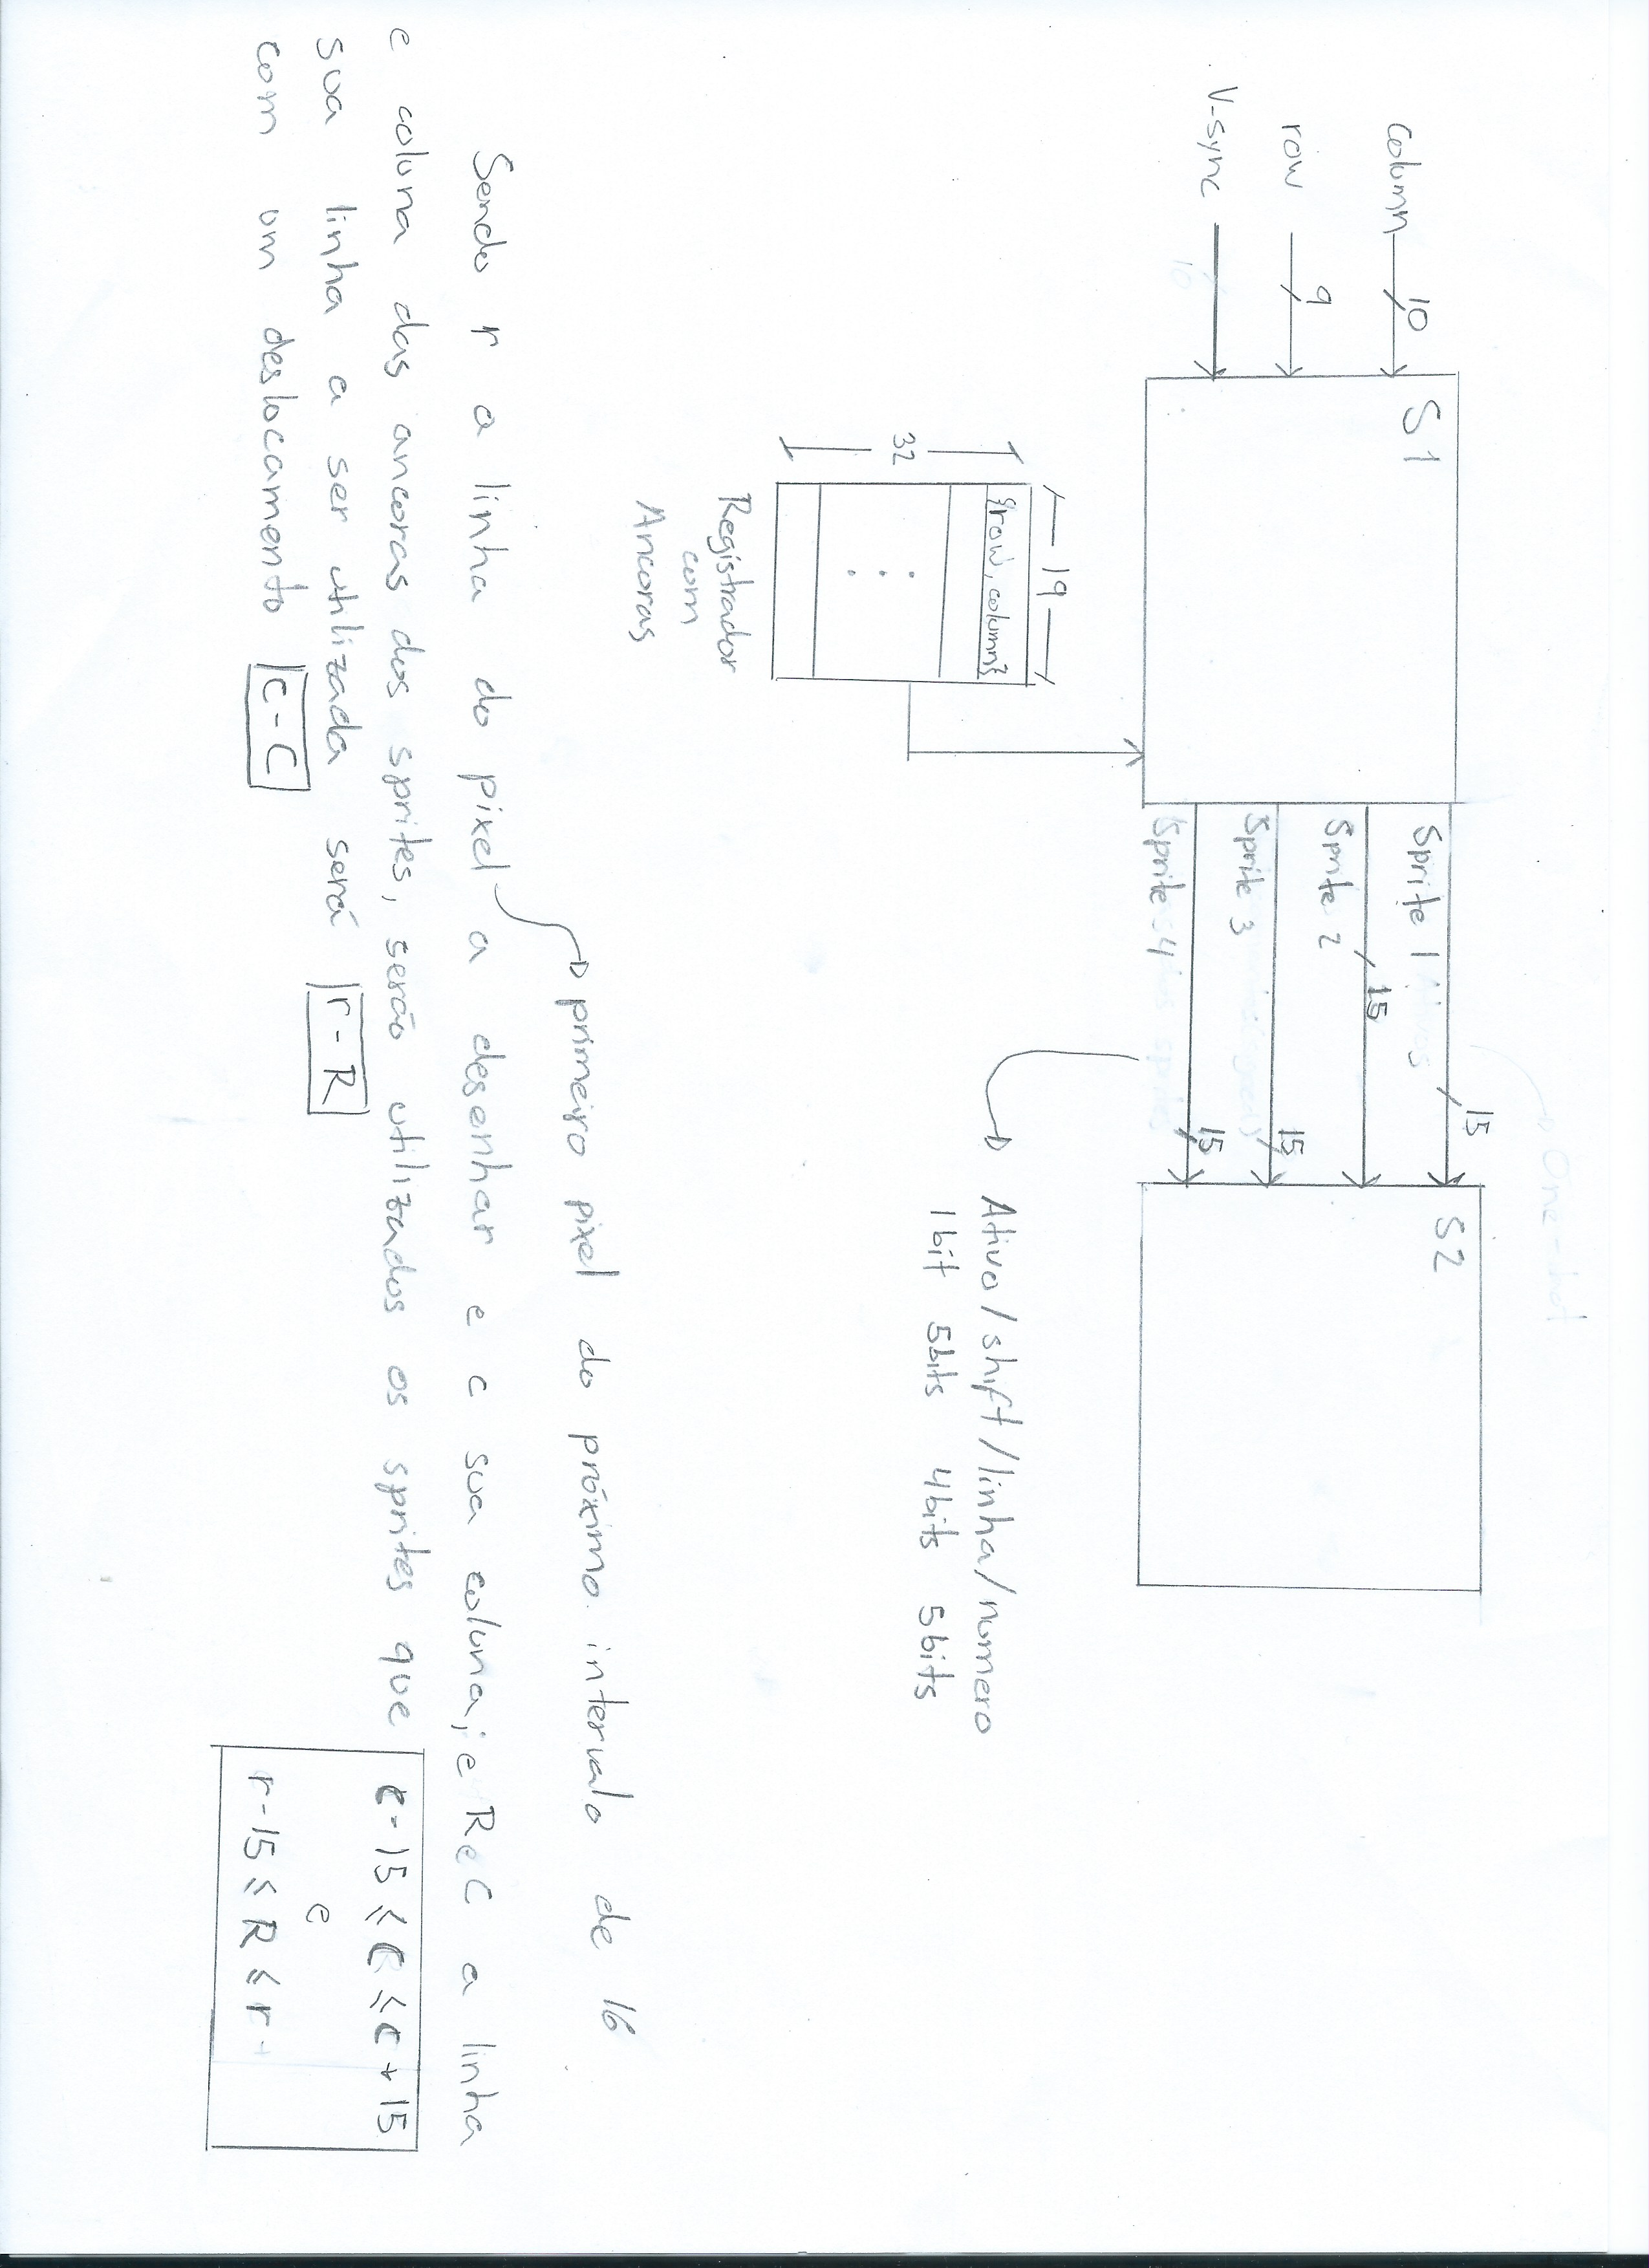 One-hot
15
S1
S2
column
10
Sprite 1
15
Sprite 2
row
9
15
Sprite 3
V-sync
15
10
Sprite 4
19
{row, column}
32
Ativo / shift / linha / numero
1 bit 5 bits 4 bits 5 bits
Registrador
com
Ancoras
primeiro pixel do próximo intervalo de 16
Sendo r a linha do pixel a desenhar e c sua coluna; e R e C a linha
e coluna das ancoras dos sprites, serão utilizados os sprites que
c - 15 ≤ C ≤ c + 15
e
r - 15 ≤ R ≤ r
sua linha a ser utilizada será r - R
com um deslocamento c - C